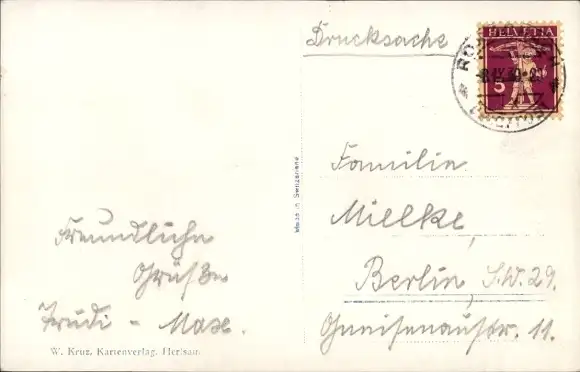 Drucksache
HELVETIA
5
Familie
Mielke,
Berlin, S.W. 29.
Gneisenaustr. 11.
Made in Switzerland
Freundliche
Grüße
Trudi - Max.
W. Kruz, Kartenverlag, Herisau